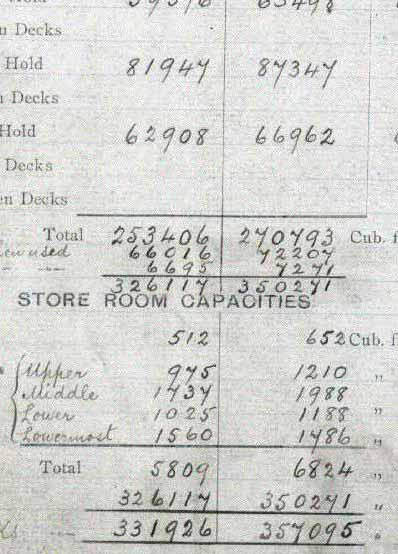 Decks
Hold 81947 87347
Decks
Hold 62908 66962
Decks
Decks
Total 253406 270793 Cub.
used 66016 72207
6695 7271
326117 350271
STORE ROOM CAPACITIES
512 652 Cub.
Upper 975 1210 "
Middle 1737 1988
Lower 1025 1188 "
Lowermost 1560 1786 "
Total 5809 6824 "
326117 350271 "
331926 357095 "